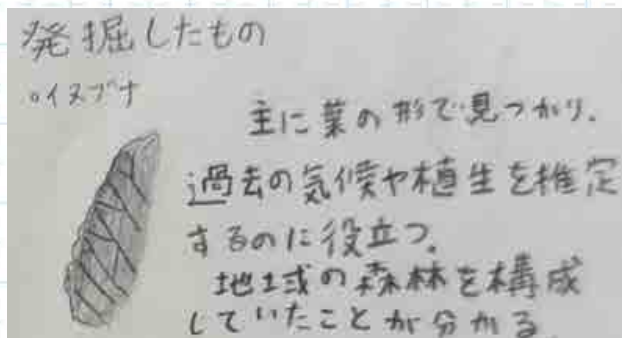 発掘したもの
。イヌブナ
主に葉の形で見つかり、
過去の気候や植生を推定
するのに役立つ。
地域の森林を構成
していたことが分かる